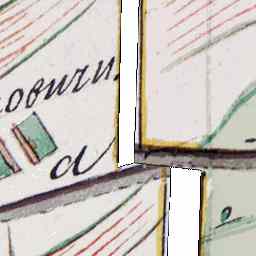 ловичи
а